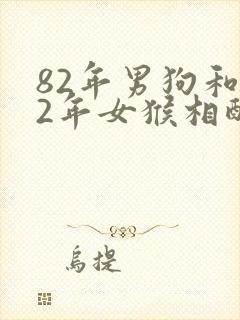 82年男狗和
2年女猴相配
乌提